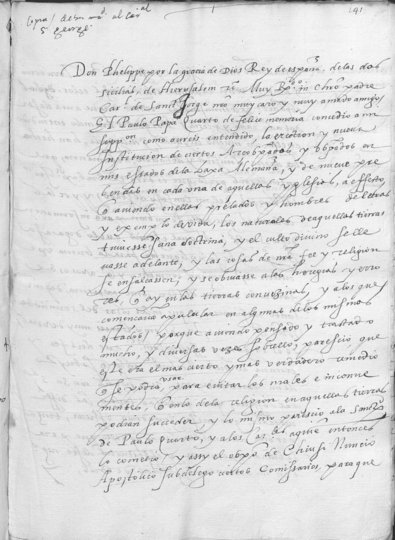 Copia de su md. al Car.ial
S. George
191
Don Phelippe por la gracia de Dios Rey de españa, de las dos
Sicilias, de Hierusalem &c. Muy Rdo. in Chro padre
Car. de Sant Jorge nro muy caro y muy amado amigo
El Paulo Papa Quarto de felice memoria concedio a mi
supp.on como aureis entendido, la erection y nueua
Institucion de ciertos Arçobpados y bpados en
mis estados de la baxa Alemaña, y de nueue pre
bendas en cada una de aquellas yglesias, a effecto
auiendo en ellas prelados y hombres de letras
y exemplo de vida, los naturales de aquellas tierras
tuuiessen sana doctrina, y el culto diuino se lle
uasse adelante, y las cosas de nra fee y religion
se ensalcassen, y se obuiasse a las heregias y erro
res, q ay en las tierras conuezinas, y a los que
començauan a pulular en algunas de los mismos
estados, porque auiendo pensado y tratado
mucho, y diuersas vezes sobrello, parescio que
este era el mas cierto y mas verdadero remedio
q se podia usar para euitar los males e inconue
nientes, q en lo de la religion en aquellas tierras
podian succeder, y lo mismo parescio a la Santd.
de Paulo Quarto, y a los Car.les a quien entonces
lo cometio, y assy el obpo de Chiusi Nuncio
Apostolico subdelego ciertos Comissarios, para que